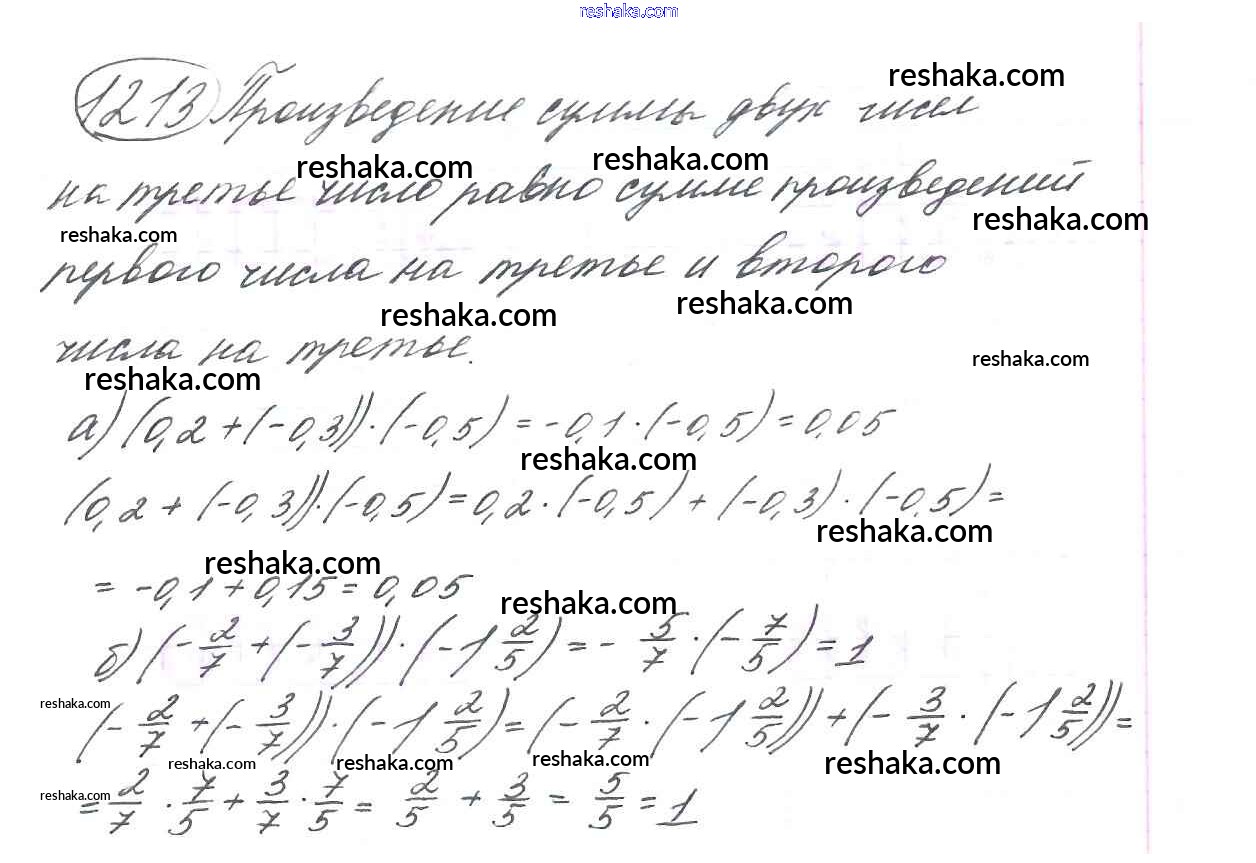 reshaka.com
1213 Произведение суммы двух чисел
reshaka.com
reshaka.com reshaka.com
на третье число равно сумме произведений
reshaka.com reshaka.com
первого числа на третье и второго
reshaka.com reshaka.com
числа на третье.
reshaka.com reshaka.com
а) (0,2 + (-0,3)) · (-0,5) = -0,1 · (-0,5) = 0,05
reshaka.com
(0,2 + (-0,3)) · (-0,5) = 0,2 · (-0,5) + (-0,3) · (-0,5) =
reshaka.com
reshaka.com
= -0,1 + 0,15 = 0,05
reshaka.com
б) (- 2/7 + (- 3/7)) · (- 1 2/5) = - 5/7 · (- 7/5) = 1
reshaka.com
(- 2/7 + (- 3/7)) · (- 1 2/5) = (- 2/7 · (- 1 2/5)) + (- 3/7 · (- 1 2/5)) =
reshaka.com reshaka.com reshaka.com reshaka.com
reshaka.com
= 2/7 · 7/5 + 3/7 · 7/5 = 2/5 + 3/5 = 5/5 = 1